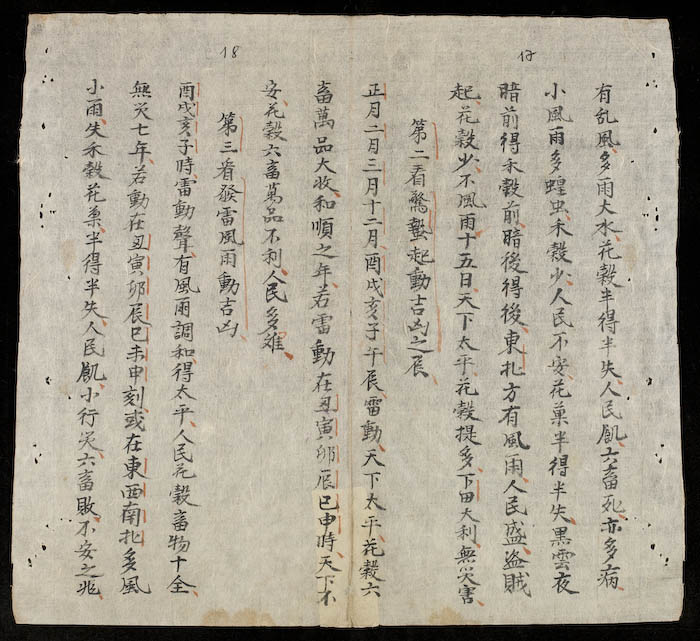 17
有乱風多雨大水花穀半得半失人民飢六畜死亦多病
小風雨多蝗虫禾穀少人民不安花菓半得半失黒雲夜
暗前得禾穀前暗後得後東北方有風雨人民盛盗賊
起花穀少不風雨十五日天下太平花穀提多下田大利無災害
第二看驚蟄起動吉凶之辰
18
正月二月三月十二月酉戌亥子午辰雷動天下太平花穀六
畜萬品大收和順之年若雷動在丑寅卯辰巳申時天下不
安花穀六畜萬品不利人民多难
第三看發雷風雨動吉凶
酉戌亥子時雷動聲有風雨調和得太平人民花穀畜物十全
無災七年若動在丑寅卯辰巳未申刻或在東西南北多風
小雨失禾穀花菓半得半失人民飢小行災六畜敗不安之兆